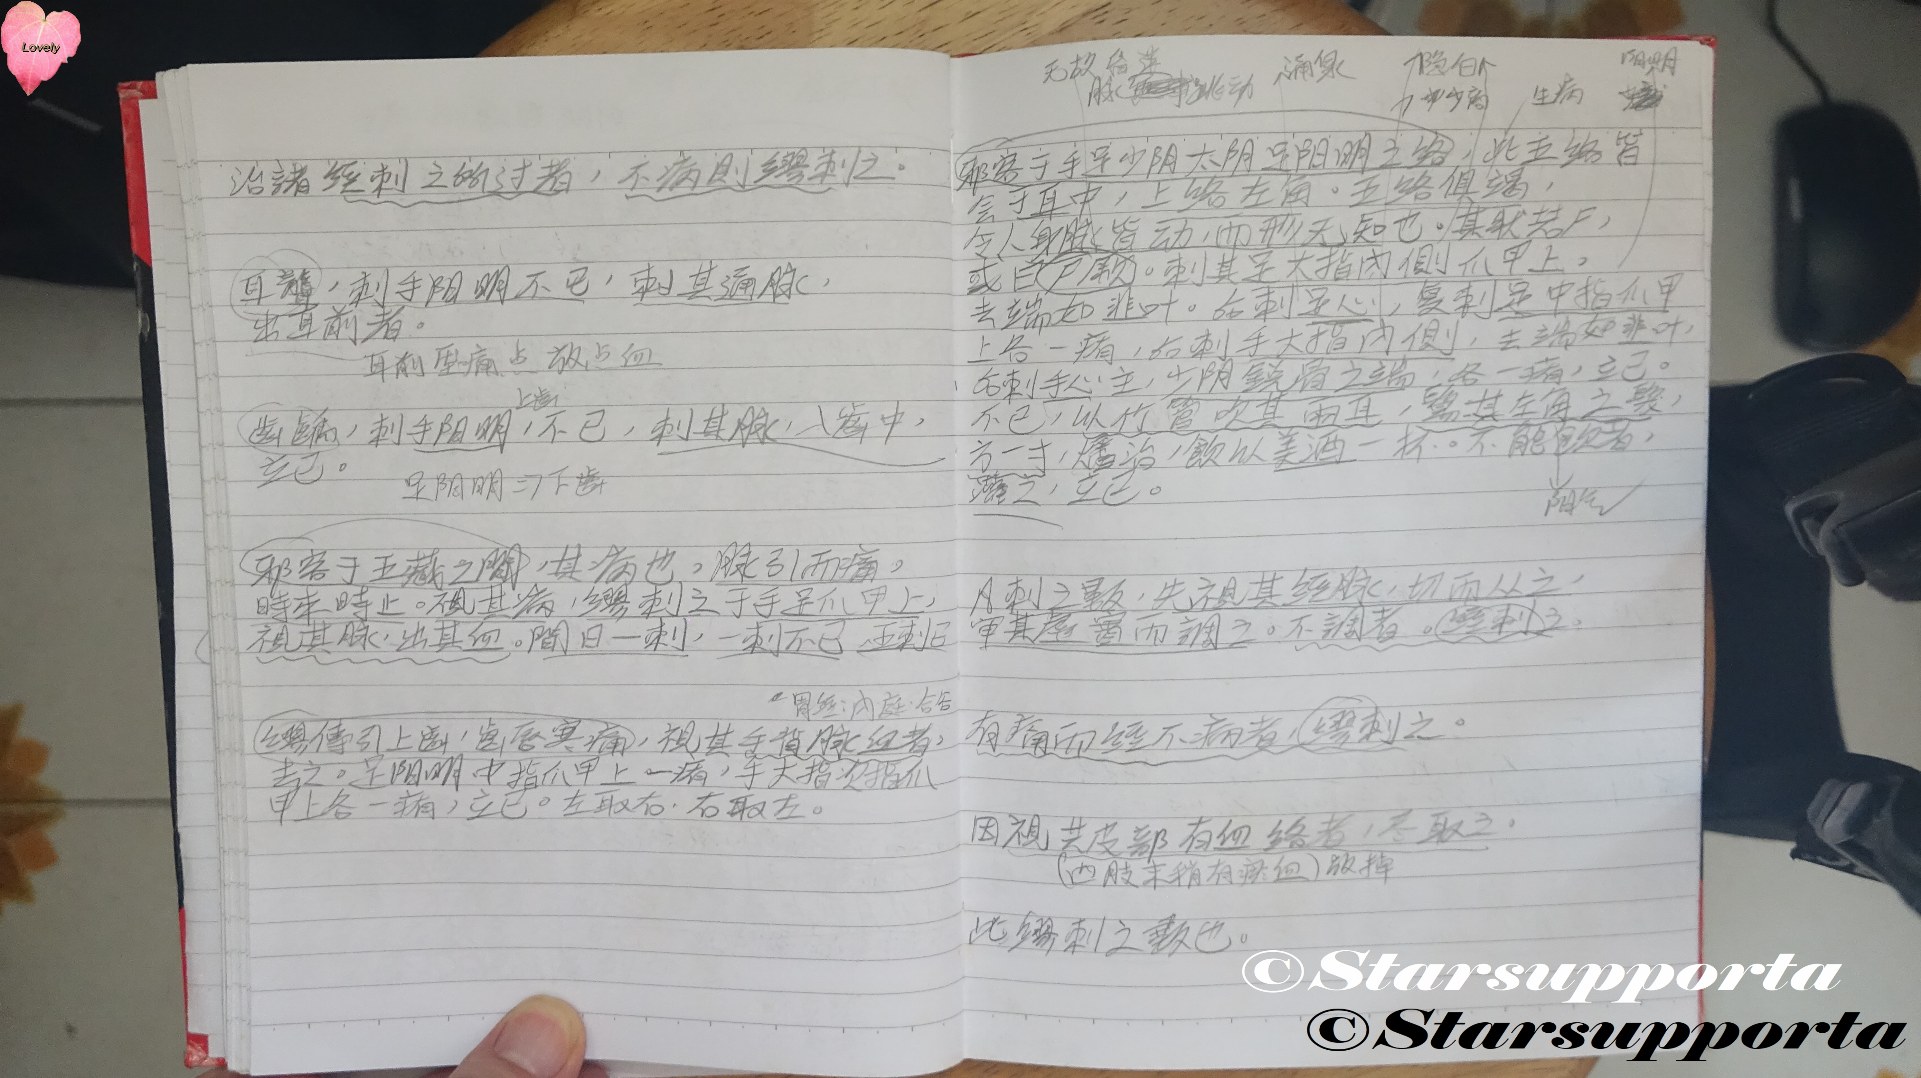 Lovely
治諸經刺之的过者，不病則繆刺之。
耳聾，刺手阳明不已，刺其通脉，
出耳前者。
耳前压痛点放点血
上齿
齿齲，刺手阳明，不已，刺其脉，入齒中，
立已。
足阳明⇒下齿
邪客于五藏之間，其病也，脉引而痛，
時來時止。視其病，繆刺之于手足爪甲上，
視其脉，出其血。間日一刺，一刺不已 五刺已
胃经：内庭·合谷
繆傳引上齒，齒唇寒痛，視其手背脉血者，
去之。足阳明中指爪甲上一痏，手大指次指爪
甲上各一痏，立已。左取右·右取左。
无故
脉 动
涌泉
隐白
中少商
生病
阳明
邪客于手足少阴太阴足阳明之络，此五络皆
会于耳中，上络左角。五络俱竭，
令人身脉皆动，而形无知也。其状若尸，
或曰尸厥。刺其足大指内側爪甲上，
去端如韭叶。后刺足心，复刺足中指爪甲
上各一痏，后刺手大指内側，去端如韭叶，
后刺手心主，少阴銳骨之端，各一痏，立已。
不已，以竹管吹其两耳，鬄其左角之髮，
方一寸，燔治，飲以美酒一杯。不能飲者，
灌之，立已。
阳气
凡刺之數，先視其经脉，切而从之，
审其虛實而調之。不調者。經刺之。
有痛而经不病者，繆刺之。
因視其皮部有血络者，尽取之。
（四肢末稍有瘀血）放掉
此繆刺之數也。
©Starsupporta
©Starsupporta